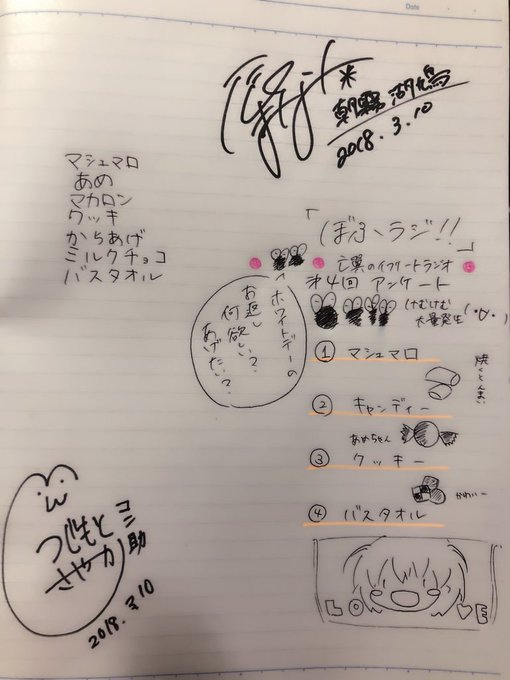 Date
朝霧 湖鳥
2018. 3. 10
マシュマロ
あめ
マカロン
クッキ
からあげ
ミルクチョコ
バスタオル
「ぼふラジ!!」
亡翼のイフゲートラジオ
オ4回 アンケート
けむけむ
大量発生
ホワイトデーの
お返し
何欲しい?
あげたい?
① マシュマロ
焼くとんまい
② キャンディー
あめちゃん
③ クッキー
かわいー
④ バスタオル
LOVE
コン助
つじもと
さやか
2018. 3. 10